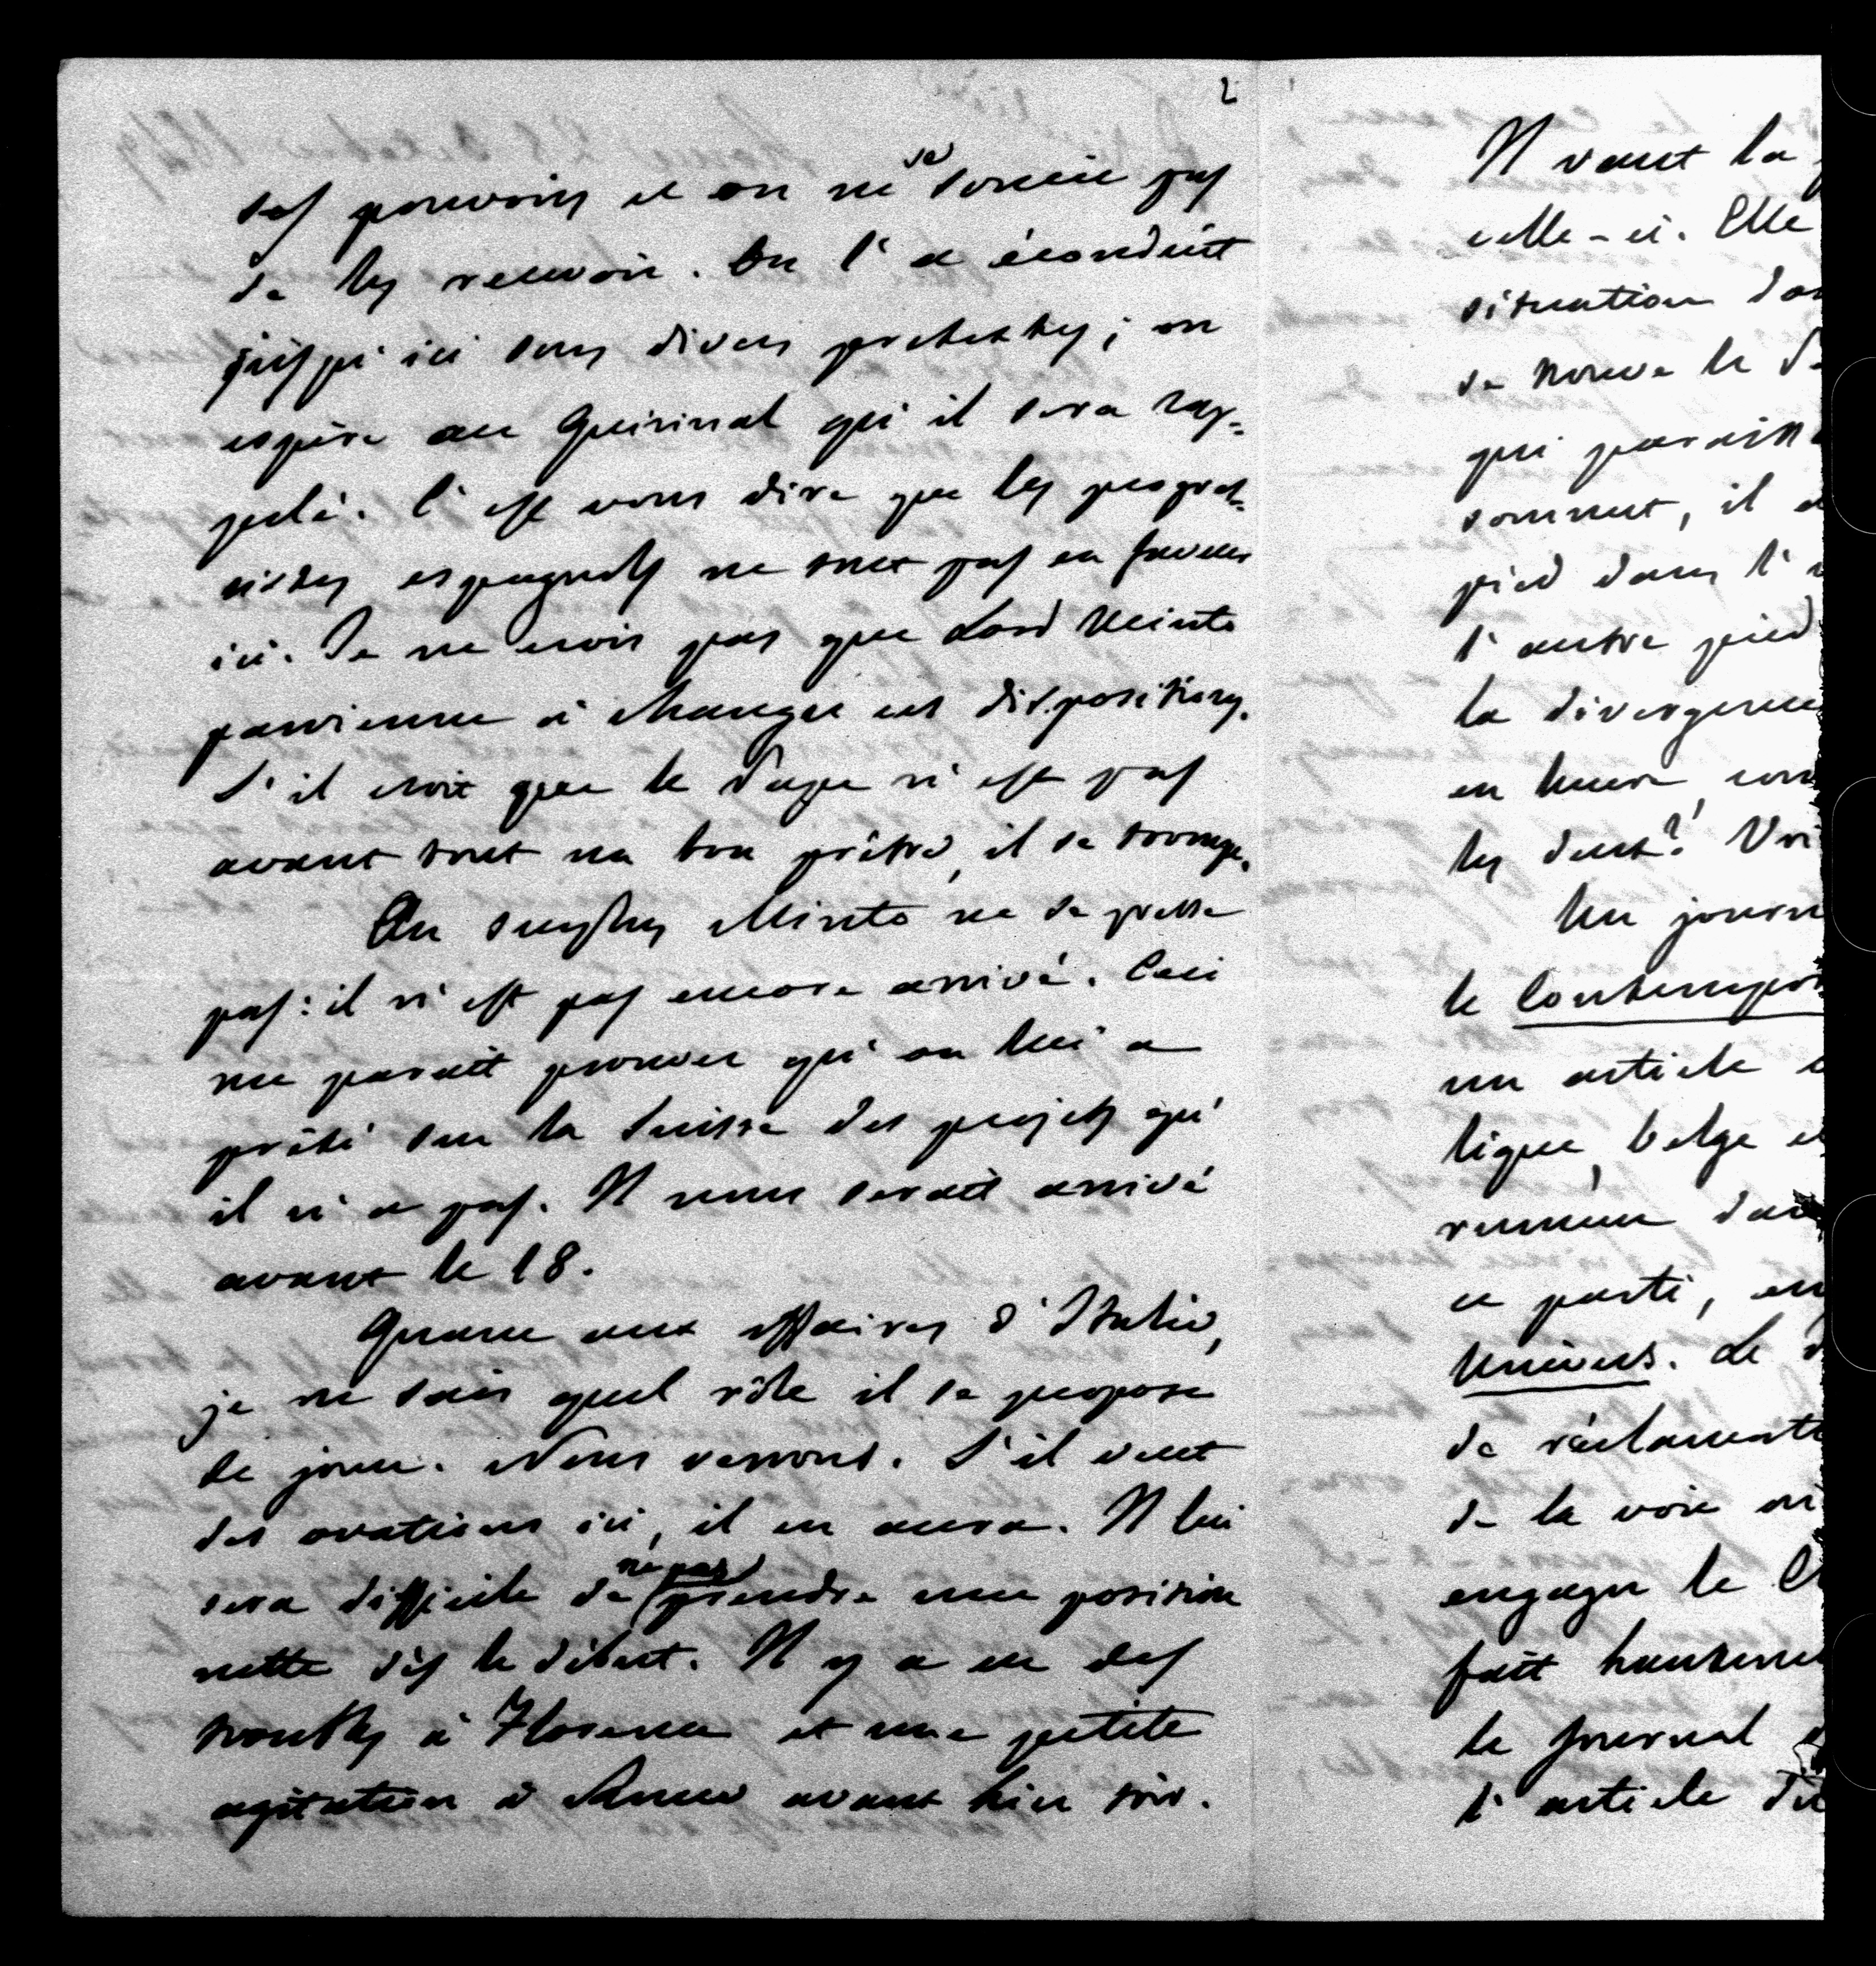 2
ses pouvoirs et on ne se soucie pas
de les recevoir. On l'a éconduit
jusqu'ici sous divers prétextes ; on
espère au Quirinal qu'il sera rap-
pelé. C'est vous dire que les progres-
sistes espagnols ne sont pas en faveur
ici. Je ne crois pas que Lord Minto
parvienne à changer ces dispositions.
S'il croit que le Pape n'est pas
avant tout un bon prêtre, il se trompe.
Au surplus Minto ne se presse
pas : il n'est pas encore arrivé. Ceci
me parait prouver qu'on lui a
prêté sur la Suisse des projets qu'
il n'a pas. Il nous serait arrivé
avant le 18.
Quant aux affaires d'Italie,
je ne sais quel rôle il se propose
de jouer. Nous verrons. S'il veut
des ovations ici, il en aura. Il lui
sera difficile de ne pas prendre une position
nette dès le début. Il y a eu des
troubles à Florence et une petite
agitation à Rome avant hier soir.
Il vaut la
celle-ci. Elle
situation
se trouve le
qui
sommet, il
pied dans l'
l'autre pied
la divergence
en
les deux?! 
Un journ
le Contempor
un article
lique, belge et
réunion
ce parti, en
Univers. Le
de
de la voie
engager le
fait hautemen
le journal
l'article du